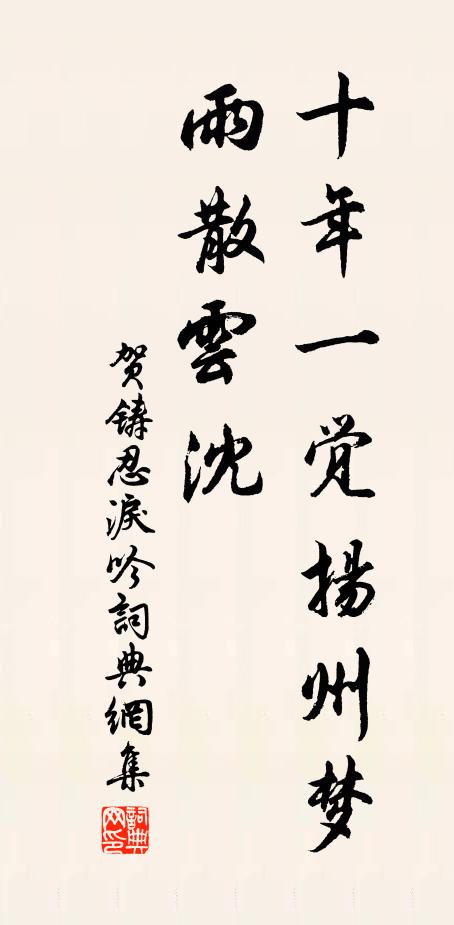 十年一觉揚州梦
雨散雲沈
贺鑄忍淚吟詞典網集
詞典
网印